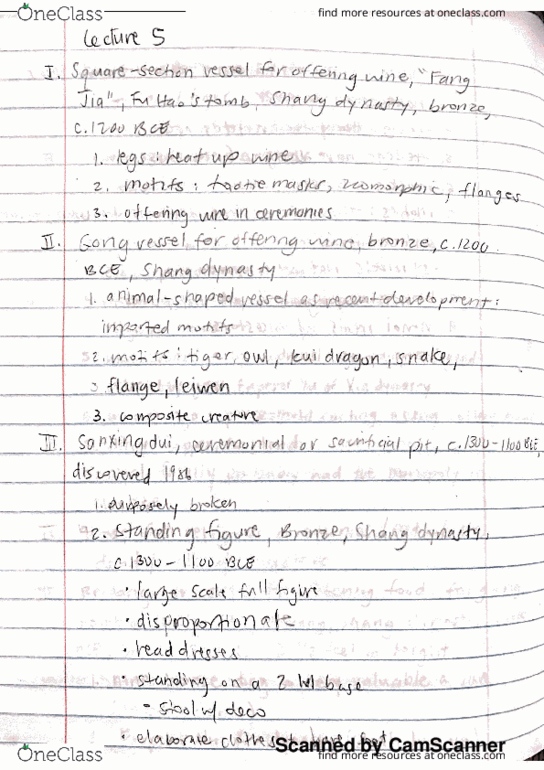 OneClass
find more resources at oneclass.com
Lecture 5
I. Square-section vessel for offering wine, "Fang
Jia", Fu Hao's tomb, Shang dynasty, bronze,
c.1200 BCE
1. legs : heat up wine
2. motifs : taotie masks, zoomorphic, flanges
3. offering wine in ceremonies
II. Gong vessel for offering wine, bronze, c.1200
BCE, Shang dynasty
1. animal-shaped vessel as recent development :
imported motifs
2. motifs : tiger, owl, kui dragon, snake,
flange, leiwen
3. composite creature
III. Sanxingdui, ceremonial or sacrificial pit, c.1300-1100 BCE,
discovered 1986
1. purposely broken
2. Standing figure, Bronze, Shang dynasty,
c.1300-1100 BCE
• large scale full figure
• disproportionate
• headdresses
• standing on a 2 lvl base
- stool w/ deco
• elaborate clothes
Scanned by CamScanner
OneClass
find more resources at oneclass.com